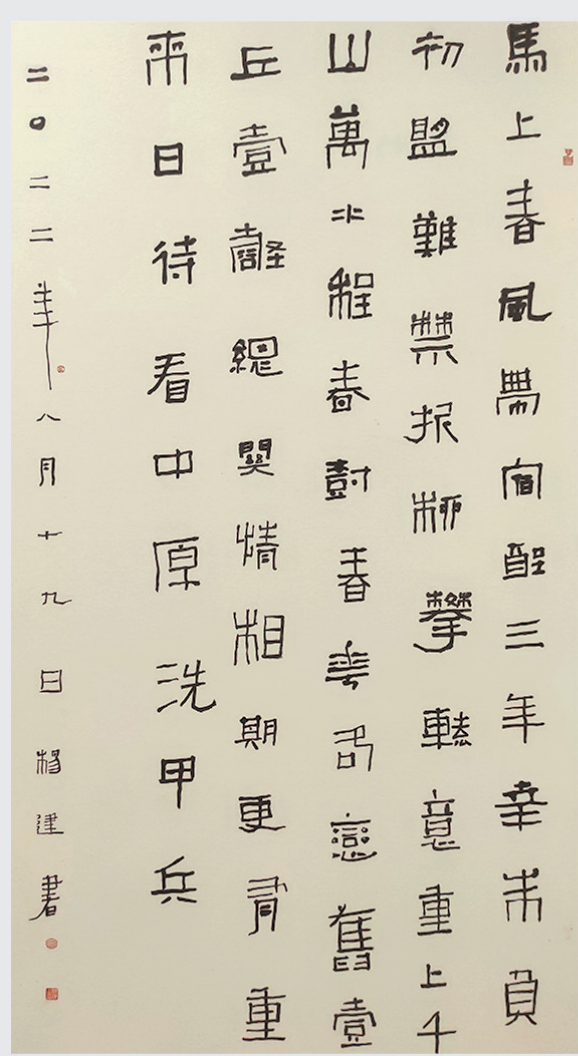 馬上春風帶宿酲三年幸未負
初盟難禁折柳攀轅意重上千
山萬水程春尌春華戀舊壹
丘壹壑總關情相期更有重
來日待看中原洗甲兵
二〇二二年八月十九日楊建書